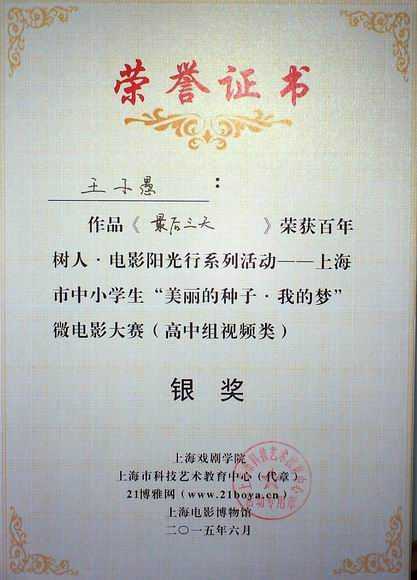 荣誉证书
王小愚：
作品《最后三天》荣获百年
树人·电影阳光行系列活动——上海
市中小学生“美丽的种子·我的梦”
微电影大赛（高中组视频类）
银奖
上海戏剧学院
上海市科技艺术教育中心（代章）
21博雅网（www.21boya.cn）
上海电影博物馆
二〇一五年六月